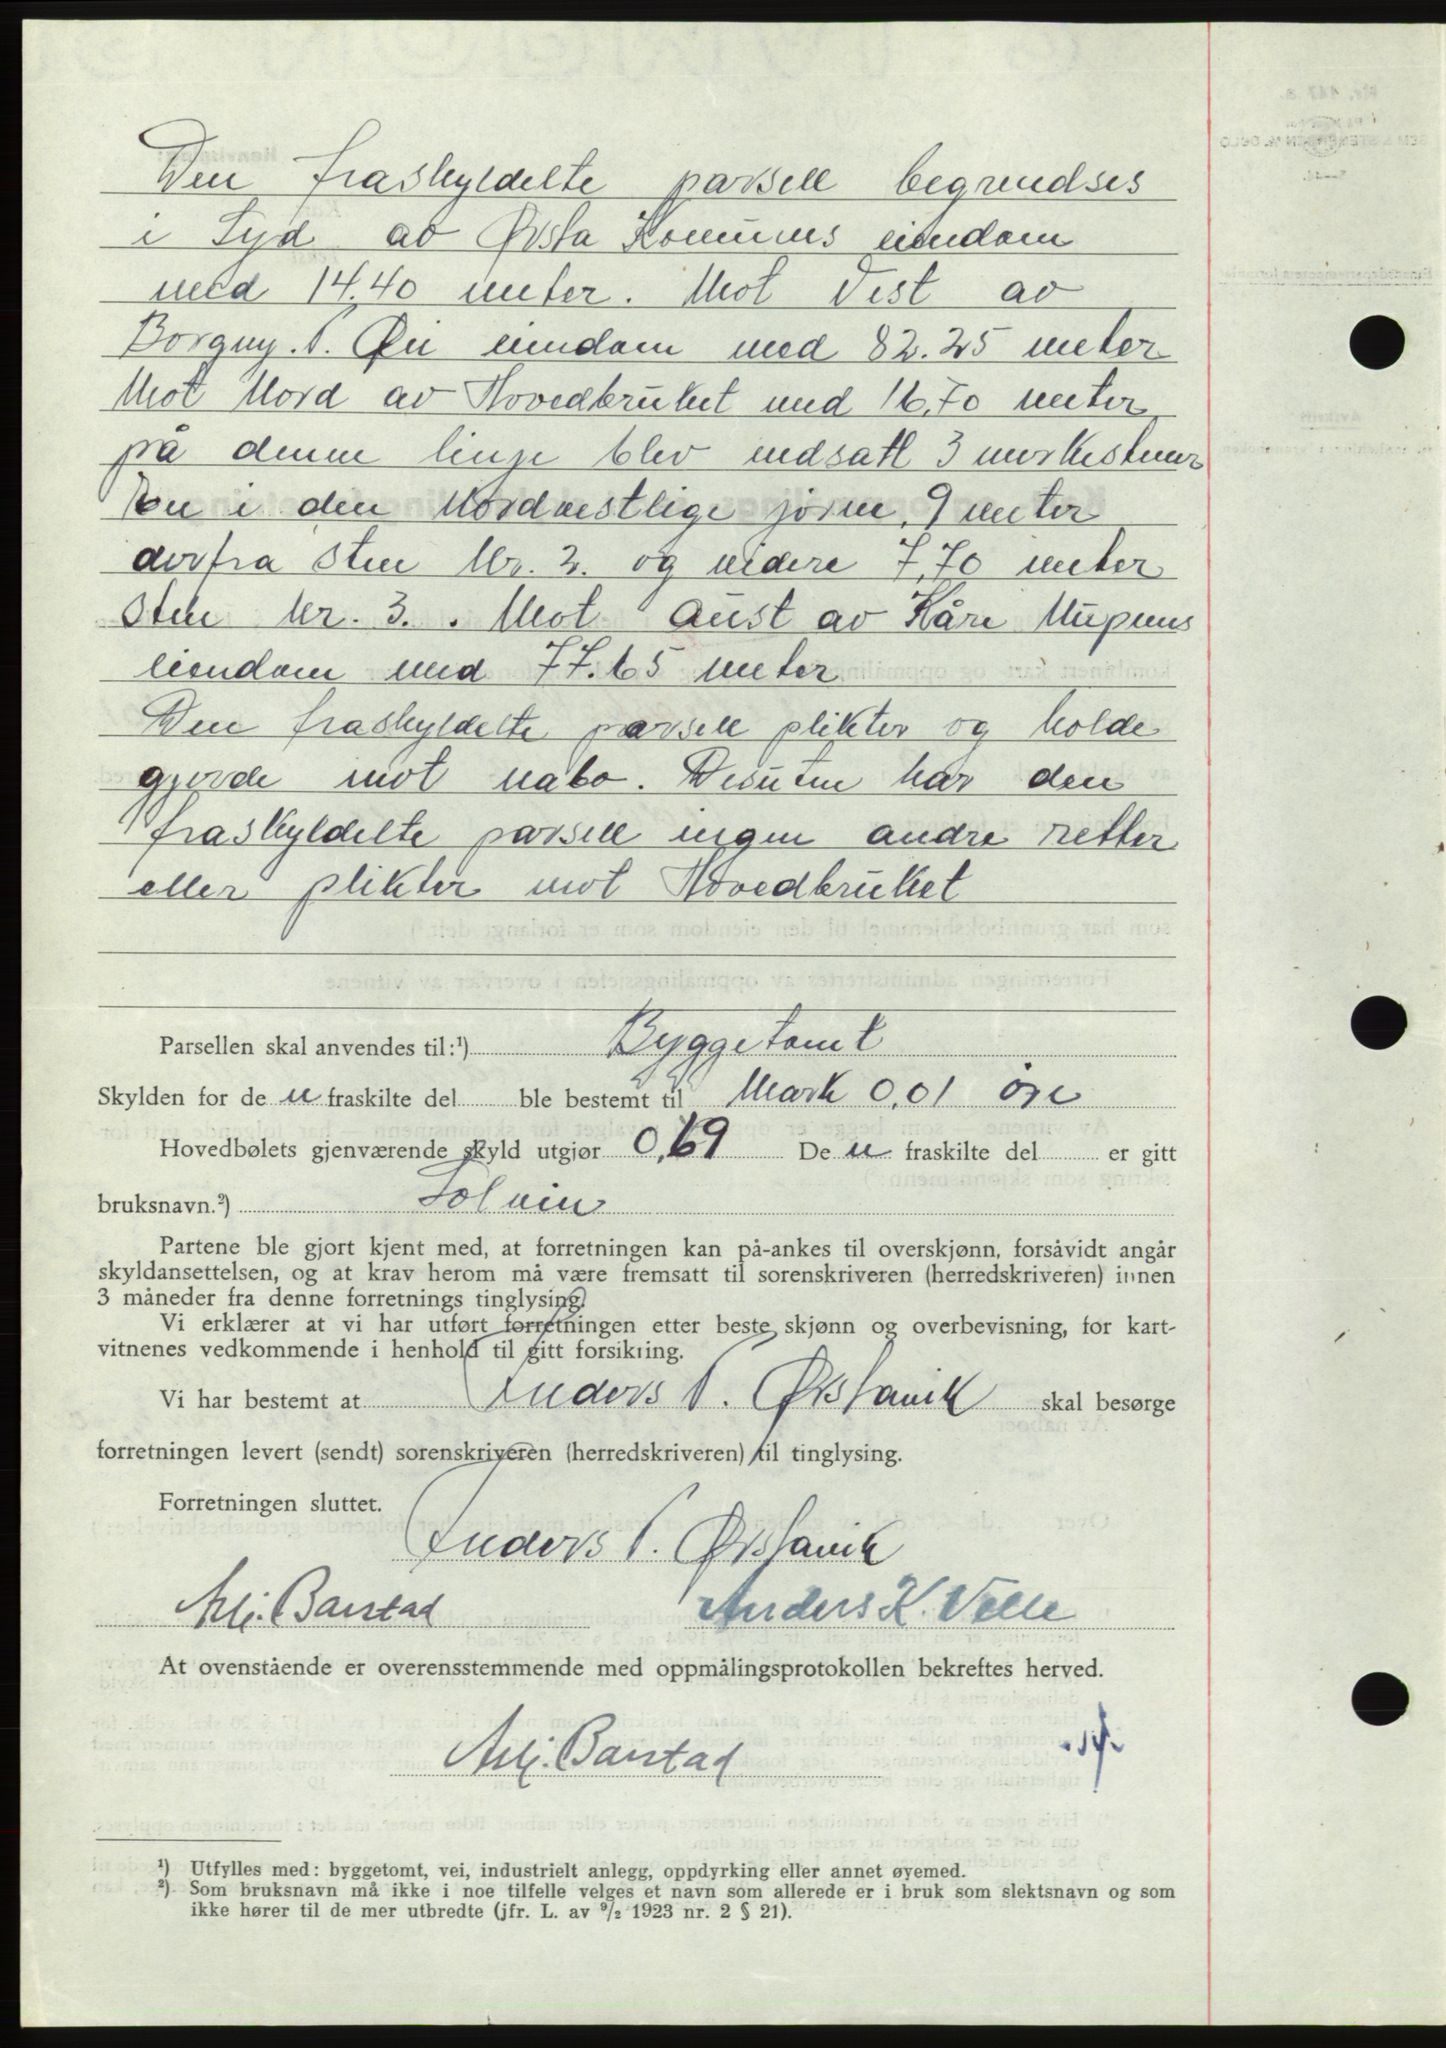 Den fraskyldelte parsell begrendses
i Syd av Ørsta Kommunes eiendom
med 14.40 meter. Mot Vest av
Borgny. P. Øie eiendom med 82.25 meter
Mot Nord av Hovedbruket med 16,70 meter
på denne linje blev nedsatt 3 merkestener
En i den Nordvestlige jørne, 9 meter
derfra sten Nr. 2. og videre 7,70 meter
sten Nr. 3. . Mot Aust av Kåre
eiendom med 77.65 meter
Den fraskyldelte parsell plikter og holde
gjerde mot nabo. Desuten har den
fraskyldelte parsell ingen andre retter
eller plikter mot Hovedbruket
Parsellen skal anvendes til:¹) Byggetomt
Skylden for de n fraskilte del ble bestemt til Mark 0,01 øre
Hovedbølets gjenværende skyld utgjør 0,69 De n fraskilte del er gitt
bruksnavn.²) Solvin
Partene ble gjort kjent med, at forretningen kan på-ankes til overskjønn, forsåvidt angår
skyldansettelsen, og at krav herom må være fremsatt til sorenskriveren (herredskriveren) innen
3 måneder fra denne forretnings tinglysing.
Vi erklærer at vi har utført forretningen etter beste skjønn og overbevisning, for kart-
vitnenes vedkommende i henhold til gitt forsikring.
Vi har bestemt at Anders P. Ørstavik skal besørge
forretningen levert (sendt) sorenskriveren (herredskriveren) til tinglysing.
Forretningen sluttet.
Anders P. Ørstavik
Barstad Anders K. Velle
At ovenstående er overensstemmende med oppmålingsprotokollen bekreftes herved.
Barstad
¹) Utfylles med: byggetomt, vei, industrielt anlegg, oppdyrking eller annet øyemed.
²) Som bruksnavn må ikke i noe tilfelle velges et navn som allerede er i bruk som slektsnavn og som
ikke hører til de mer utbredte (jfr. L. av 9/2 1923 nr. 2 § 21).